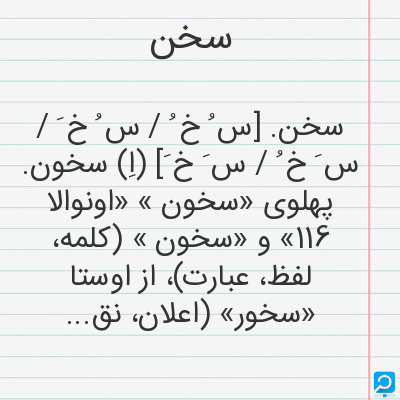 سخن
سخن. [س ُ خ ُ / س ُ خ َ /
س َ خ ُ / س َ خ َ] (اِ) سخون.
پهلوی «سخون » «اونوالا
116» و «سخون » (کلمه،
لفظ، عبارت)، از اوستا
«سخور» (اعلان، نق...